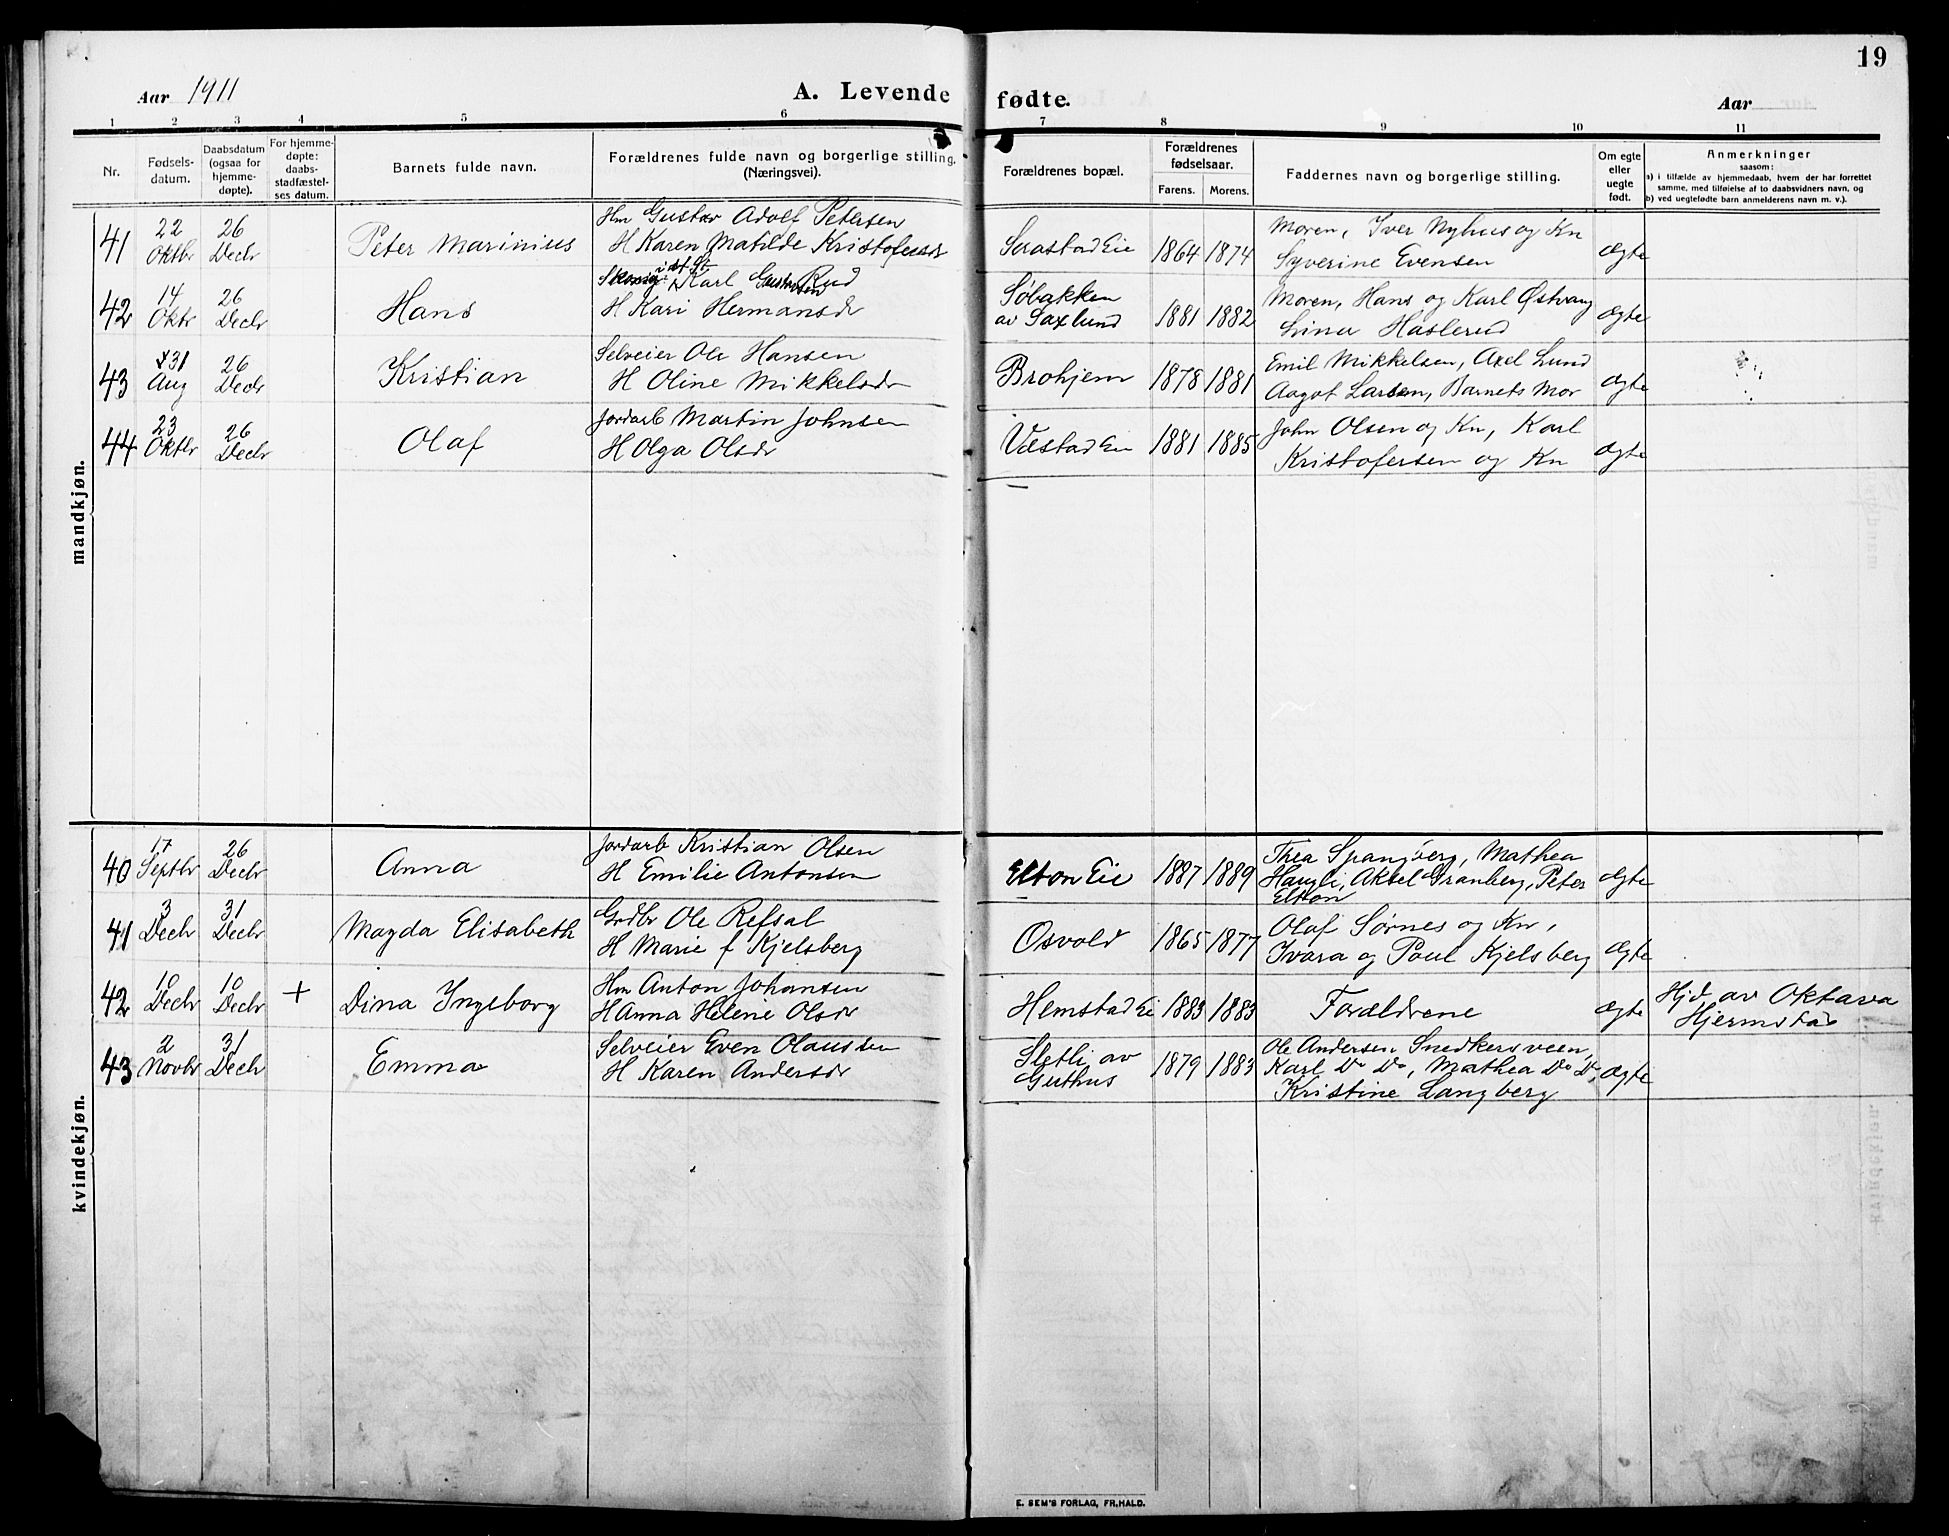 19
Aar 1911
A. Levende fødte.
Aar
1 2 3 4 5 6 7 8 9 10 11
Nr.
Fødsels-
datum.
Daabsdatum
(ogsaa for
hjemme-
døpte).
For hjemme-
døpte:
daabs-
stadfæstel-
ses datum.
Barnets fulde navn.
Forældrenes fulde navn og borgerlige stilling.
(Næringsvei).
Forældrenes bopæl.
Forældrenes
fødselsaar.
Farens. Morens.
Faddernes navn og borgerlige stilling.
Om egte
eller
uegte
født.
Anmerkninger
saasom:
a) i tilfælde av hjemmedaab, hvem der har forrettet
samme, med tilføielse af to daabsvidners navn, og
b) ved uegtefødte barn anmelderens navn m. v.).
mandkjøn.
41 22 Oktbr 26 Decbr Peter Marinius
Hm Gustav Adolf Petersen
H Karen Matilde Kristofersdr
Eie 1864 1874
Moren, Iver Nyhus og Kn
Syverine Evensen
ægte
42 14 Oktr 26 Decbr Hans
Karl Gustavsen Rud
H Kari Hermansdr
Søbakken
av Saxlund 1881 1882
Moren, Hans og Karl Østvang
Lina Haslerud
ægte
43 31 Aug 26 Decbr Kristian
Selveier Ole Hansen
H Oline Mikkelsdr
Brohjem 1878 1881
Emil Mikkelsen, Axel Lund
Aagot Larsen, Barnets Mor
ægte
44 23 Oktbr 26 Decbr Olaf
Jordarb Martin Johnsen
H Olga Olsdr
Vestad Eie 1881 1885
John Olsen og Kn, Karl
Kristofersen og Kn
ægte
kvindekjøn.
40 17 Septbr 26 Decbr Anna
Jordarb Kristian Olsen
H Emilie Antonsen
Elton Eie 1887 1889
Thea Spangberg, Mathea
Haugli, Aksel Granberg, Peter
Elton
ægte
41 3 Decbr 31 Decbr Magda Elisabeth
Grdbr Ole Refsal
H Marie f Kjelsberg
Osvold 1865 1877
Olaf Sørnes og Kn,
Ivara og Paul Kjelsberg
ægte
42 10 Decbr 10 Decbr + Dina Ingeborg
Hm Anton Johansen
H Anna Helene Olsdr
Hemstad Ei 1883 1883
Forældrene
ægte
Hjd av Oktava
Hjermstad
43 2 Novbr 31 Decbr Emma
Selveier Even Olaussen
H Karen Andersdr
Sletli av
Guthus 1879 1883
Ole Andersen Snedkersveen,
Karl Do Do, Mathea Do Do,
Kristine Langberg
ægte
E. SEM'S FORLAG, FR.HALD.